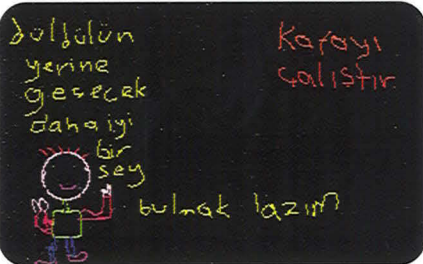 bülbülün
yerine
geçecek
daha iyi
bir
şey
bulmak lazım
Kafayı
çalıştır